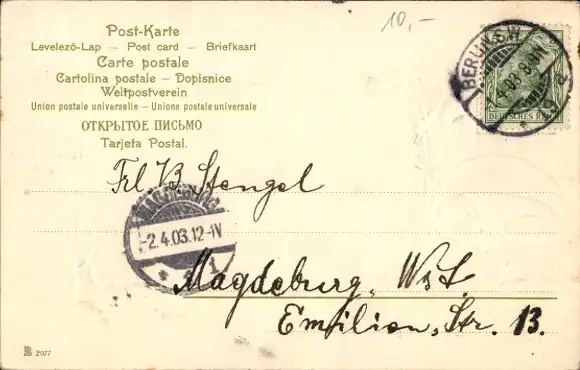 10,-
Post-Karte
Levelező-Lap — Post card — Briefkaart
Carte postale
Cartolina postale — Dopisnice
Weltpostverein
Union postale universelle — Unione postale universale
ОТКРЫТОЕ ПИСЬМО
Tarjeta Postal.
BERLIN S.W.
4.03.8-9N
19
DEUTSCHES REICH
Frl. B. Stengel
MAGDEBURG
-2.4.03.12-1V
* 1
Magdeburg, Wst.
Emilien Str. 13.
2077